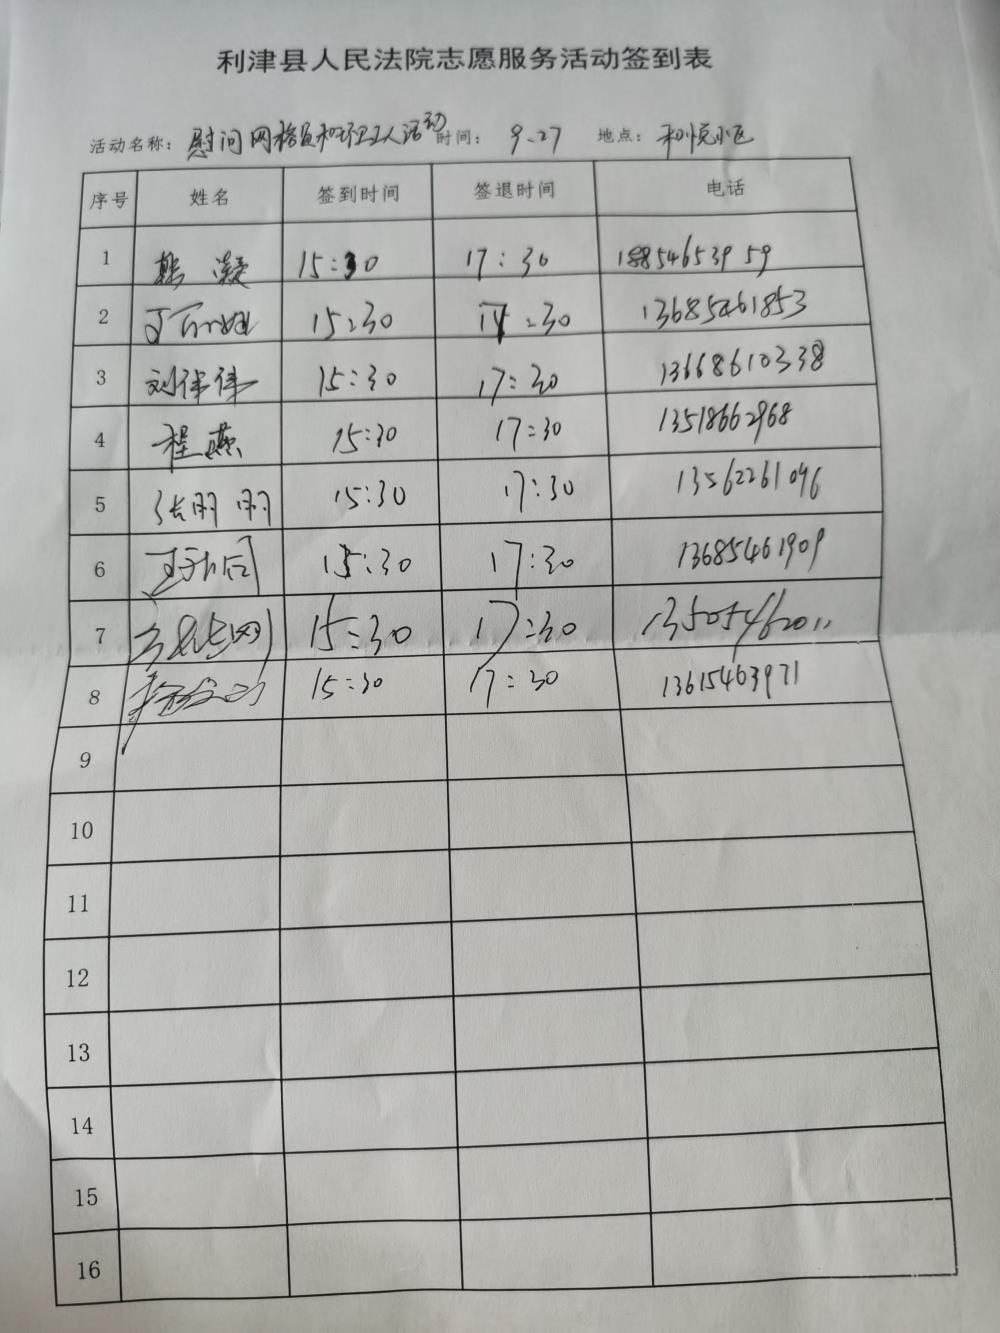 利津县人民法院志愿服务活动签到表
活动名称：慰问网格员和环卫工人活动 时间：9.27 地点：和悦小区
序号 姓名 签到时间 签退时间 电话
1 15:30 17:30 18854653959
2 15:30 17:30 13685461853
3 刘伟伟 15:30 17:30 13668610338
4 程燕 15:30 17:30 13518662968
5 张丽丽 15:30 17:30 13562261096
6 15:30 17:30 13685461909
7 15:30 17:30 13505462011
8 15:30 17:30 13615463971
9
10
11
12
13
14
15
16